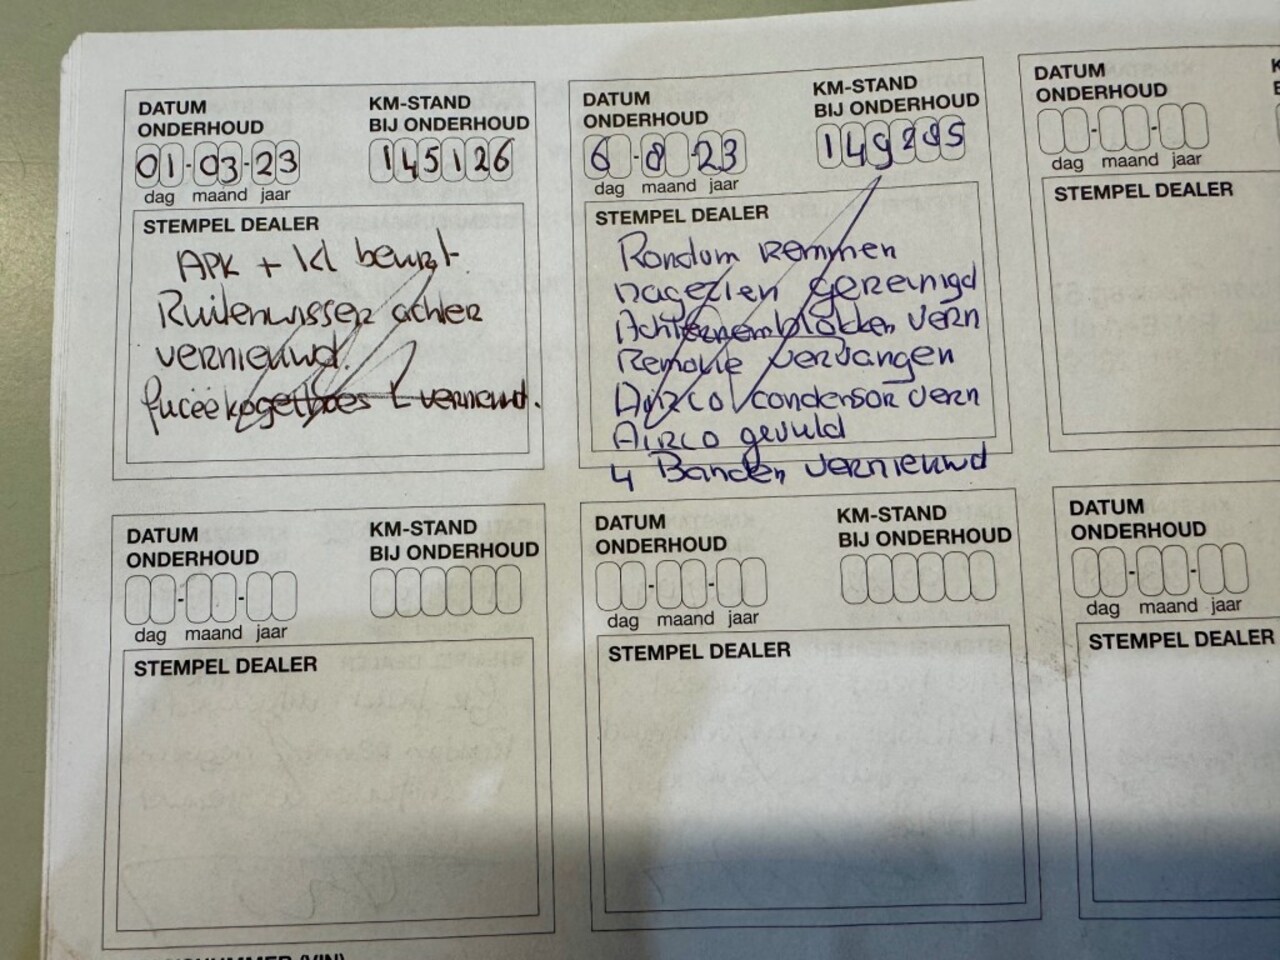 DATUM
ONDERHOUD
01-03-23
dag maand jaar
KM-STAND
BIJ ONDERHOUD
145126
STEMPEL DEALER
APK + Kl beurt.
Ruitenwisser achter
vernieuwd.
fuceekogelhoes L vernieuwd.
DATUM
ONDERHOUD
6-8-23
dag maand jaar
KM-STAND
BIJ ONDERHOUD
STEMPEL DEALER
Rondom Remmen
nagezien gereinigd
Achterremblokken vern
Remolie vervangen
Airco condensor vern
Airco gevuld
4 Banden vernieuwd
DATUM
ONDERHOUD
dag maand jaar
STEMPEL DEALER
DATUM
ONDERHOUD
dag maand jaar
KM-STAND
BIJ ONDERHOUD
STEMPEL DEALER
DATUM
ONDERHOUD
dag maand jaar
KM-STAND
BIJ ONDERHOUD
STEMPEL DEALER
DATUM
ONDERHOUD
dag maand jaar
STEMPEL DEALER
(VIN)